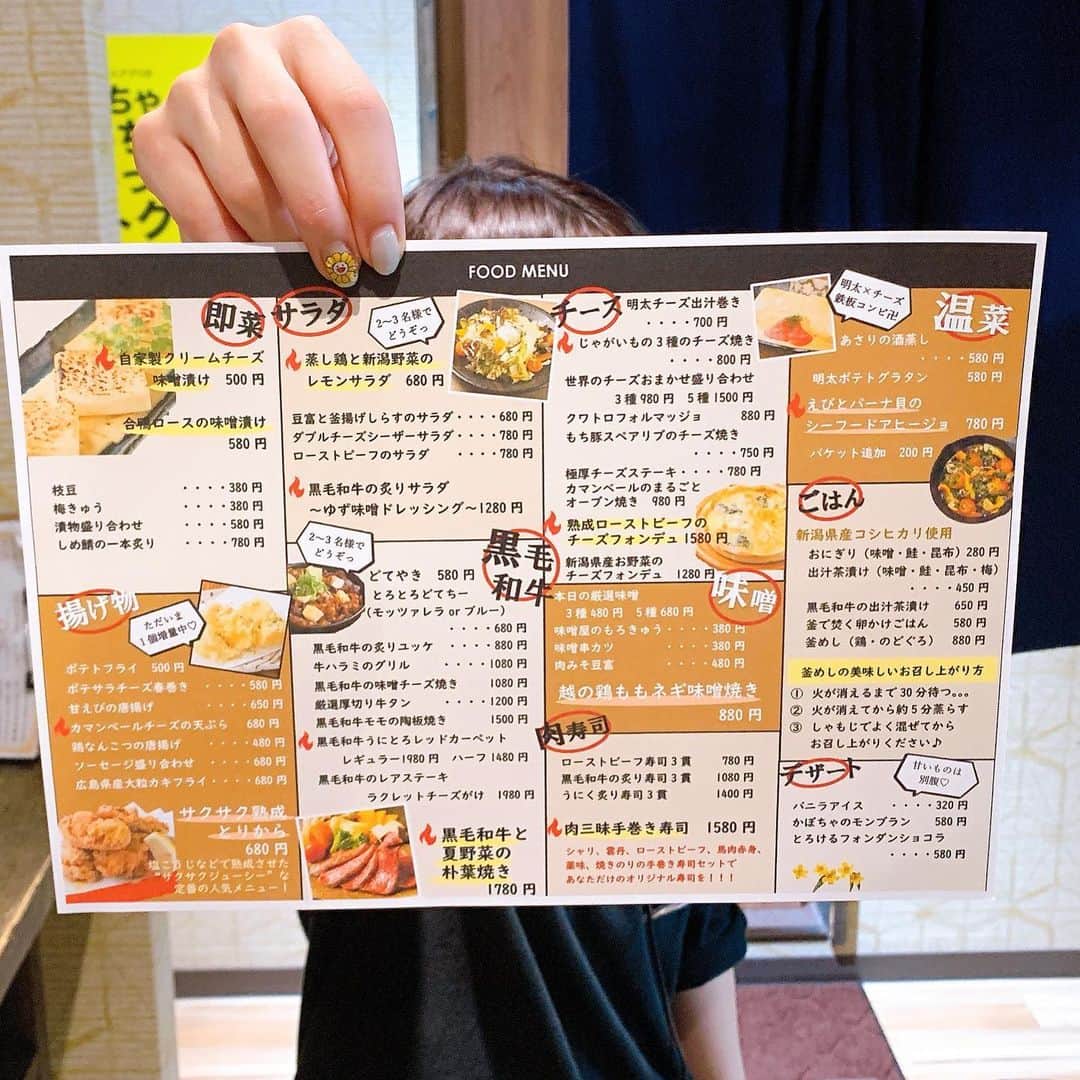 ちゃ
ち
つ
トク
FOOD MENU
即菜
自家製クリームチーズ
味噌漬け 500円
合鴨ロースの味噌漬け
580円
枝豆 ････380円
梅きゅう ････380円
漬物盛り合わせ ････580円
しめ鯖の一本炙り ････780円
揚げ物
ただいま
1個増量中♡
ポテトフライ 500円
ポテサラチーズ春巻き ････580円
甘えびの唐揚げ ････650円
カマンベールチーズの天ぷら 680円
鶏なんこつの唐揚げ ････480円
ソーセージ盛り合わせ ････680円
広島県産大粒カキフライ ････680円
サクサク熟成
とりから
680円
塩こうじなどで熟成させた
"サクサクジューシー"な
定番の人気メニュー!
サラダ
2~3名様で
どうぞっ
蒸し鶏と新潟野菜の
レモンサラダ 680円
豆富と釜揚げしらすのサラダ････680円
ダブルチーズシーザーサラダ････780円
ローストビーフのサラダ ････780円
黒毛和牛の炙りサラダ
~ゆず味噌ドレッシング~1280円
2~3名様で
どうぞっ
黒毛
和牛
どてやき 580円
とろとろどてちー
(モッツァレラ or ブルー)
････680円
黒毛和牛の炙りユッケ ････880円
牛ハラミのグリル ････1080円
黒毛和牛の味噌チーズ焼き 1080円
厳選厚切り牛タン ････1200円
黒毛和牛モモの陶板焼き 1500円
黒毛和牛うにとろレッドカーペット
レギュラー1980円 ハーフ1480円
黒毛和牛のレアステーキ
ラクレットチーズがけ 1980円
黒毛和牛と
夏野菜の
朴葉焼き
1780円
チーズ
明太チーズ出汁巻き
････700円
じゃがいもの3種のチーズ焼き
････800円
世界のチーズおまかせ盛り合わせ
3種980円 5種1500円
クワトロフォルマッジョ 880円
もち豚スペアリブのチーズ焼き
････750円
極厚チーズステーキ････780円
カマンベールのまるごと
オーブン焼き 980円
熟成ローストビーフの
チーズフォンデュ 1580円
新潟県産お野菜の
チーズフォンデュ 1280円
味噌
本日の厳選味噌
3種480円 5種680円
味噌屋のもろきゅう････380円
味噌串カツ ････380円
肉みそ豆富 ････480円
越の鶏ももネギ味噌焼き
880円
肉寿司
ローストビーフ寿司3貫 780円
黒毛和牛の炙り寿司3貫 1080円
うにく炙り寿司3貫 1400円
肉三昧手巻き寿司 1580円
シャリ、雲丹、ローストビーフ、馬肉赤身、
薬味、焼きのりの手巻き寿司セットで
あなただけのオリジナル寿司を!!!
明太×チーズ
鉄板コンビ卍
温菜
あさりの酒蒸し
････580円
明太ポテトグラタン 580円
えびとパーナ貝の
シーフードアヒージョ 780円
バケット追加 200円
ごはん
新潟県産コシヒカリ使用
おにぎり(味噌・鮭・昆布)280円
出汁茶漬け(味噌・鮭・昆布・梅)
････450円
黒毛和牛の出汁茶漬け 650円
釜で焚く卵かけごはん 580円
釜めし(鶏・のどぐろ) 880円
釜めしの美味しいお召し上がり方
① 火が消えるまで30分待つ。。。
② 火が消えてから約5分蒸らす
③ しゃもじでよく混ぜてから
お召し上がりください♪
デザート
甘いものは
別腹♡
バニラアイス ････320円
かぼちゃのモンブラン 580円
とろけるフォンダンショコラ
････580円